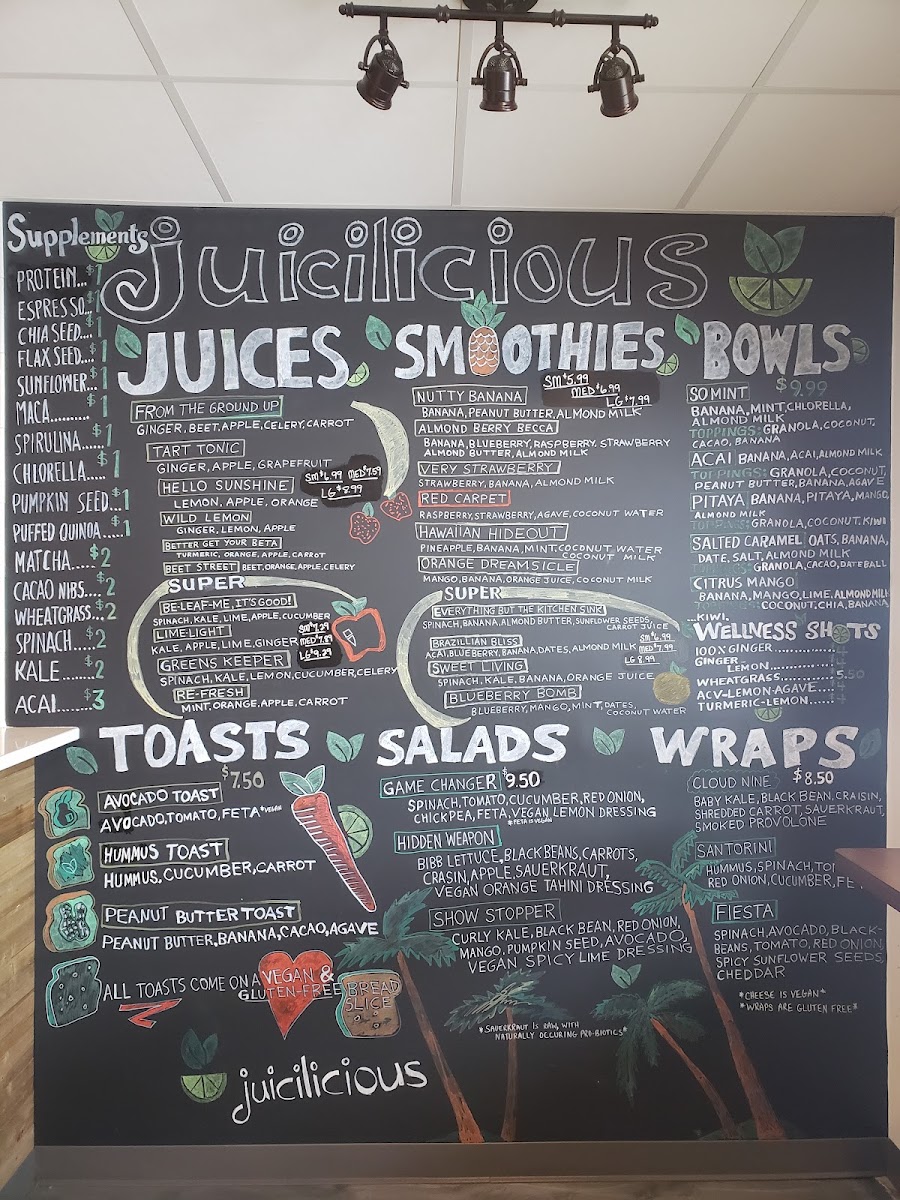 Supplements
PROTEIN...$1
ESPRESSO...$1
CHIA SEED....$1
FLAX SEED....$1
SUNFLOWER...$1
MACA.........$1
SPIRULINA.....$1
CHLORELLA.....$1
PUMPKIN SEED...$1
PUFFED QUINOA....$1
MATCHA.....$2
CACAO NIBS..$2
WHEATGRASS..$2
SPINACH....$2
KALE.......$2
ACAI.......$3
juicilicious
JUICES
FROM THE GROUND UP
GINGER, BEET, APPLE, CELERY, CARROT
TART TONIC
GINGER, APPLE, GRAPEFRUIT
SM $6.99 MED $7.59
LG $8.99
HELLO SUNSHINE
LEMON, APPLE, ORANGE
WILD LEMON
GINGER, LEMON, APPLE
BETTER GET YOUR BETA
TURMERIC, ORANGE, APPLE, CARROT
BEET STREET BEET, ORANGE, APPLE, CELERY
SUPER
BE-LEAF-ME, IT'S GOOD!
SPINACH, KALE, LIME, APPLE, CUCUMBER
LIME-LIGHT
KALE, APPLE, LIME, GINGER
SM $7.29
MED $7.89
LG $9.29
GREENS KEEPER
SPINACH, KALE, LEMON, CUCUMBER, CELERY
RE-FRESH
MINT, ORANGE, APPLE, CARROT
SMOOTHIES
SM $5.99
MED $6.99
LG $7.99
NUTTY BANANA
BANANA, PEANUT BUTTER, ALMOND MILK
ALMOND BERRY BECCA
BANANA, BLUEBERRY, RASPBERRY, STRAWBERRY
ALMOND BUTTER, ALMOND MILK
VERY STRAWBERRY
STRAWBERRY, BANANA, ALMOND MILK
RED CARPET
RASPBERRY, STRAWBERRY, AGAVE, COCONUT WATER
HAWAIIAN HIDEOUT
PINEAPPLE, BANANA, MINT, COCONUT WATER
COCONUT MILK
ORANGE DREAMSICLE
MANGO, BANANA, ORANGE JUICE, COCONUT MILK
SUPER
EVERYTHING BUT THE KITCHEN SINK
SPINACH, BANANA, ALMOND BUTTER, SUNFLOWER SEEDS,
CARROT JUICE
BRAZILLIAN BLISS
ACAI, BLUEBERRY, BANANA, DATES, ALMOND MILK
SM $6.99
MED $7.99
LG 8.99
SWEET LIVING
SPINACH, KALE, BANANA, ORANGE JUICE
BLUEBERRY BOMB
BLUEBERRY, MANGO, MINT, DATES,
COCONUT WATER
BOWLS
SO MINT $9.99
BANANA, MINT, CHLORELLA,
ALMOND MILK
TOPPINGS: GRANOLA, COCONUT,
CACAO, BANANA
ACAI BANANA, ACAI, ALMOND MILK
TOPPINGS: GRANOLA, COCONUT,
PEANUT BUTTER, BANANA, AGAVE
PITAYA BANANA, PITAYA, MANGO,
ALMOND MILK
TOPPINGS: GRANOLA, COCONUT, KIWI
SALTED CARAMEL OATS, BANANA,
DATE, SALT, ALMOND MILK
TOPPINGS: GRANOLA, CACAO, DATE BALL
CITRUS MANGO
BANANA, MANGO, LIME, ALMOND MILK
TOPPINGS: COCONUT, CHIA, BANANA,
...KIWI.
WELLNESS SHOTS
100% GINGER...............
GINGER
LEMON..............
WHEATGRASS.............
ACV-LEMON-AGAVE.....
TURMERIC-LEMON......
TOASTS
$7.50
AVOCADO TOAST
AVOCADO, TOMATO, FETA *VEGAN
HUMMUS TOAST
HUMMUS, CUCUMBER, CARROT
PEANUT BUTTER TOAST
PEANUT BUTTER, BANANA, CACAO, AGAVE
ALL TOASTS COME ON A VEGAN &
GLUTEN-FREE BREAD
SLICE
juicilicious
SALADS
GAME CHANGER $9.50
SPINACH, TOMATO, CUCUMBER, RED ONION,
CHICKPEA, FETA, VEGAN LEMON DRESSING
*FETA IS VEGAN
HIDDEN WEAPON
BIBB LETTUCE, BLACK BEANS, CARROTS,
CRASIN, APPLE, SAUERKRAUT,
VEGAN ORANGE TAHINI DRESSING
SHOW STOPPER
CURLY KALE, BLACK BEAN, RED ONION,
MANGO, PUMPKIN SEED, AVOCADO,
VEGAN SPICY LIME DRESSING
*SAUERKRAUT IS RAW, WITH
NATURALLY OCCURING PRO-BIOTICS*
WRAPS
CLOUD NINE $8.50
BABY KALE, BLACK BEAN, CRAISIN,
SHREDDED CARROT, SAUERKRAUT,
SMOKED PROVOLONE
SANTORINI
HUMMUS, SPINACH, TO
RED ONION, CUCUMBER, FE
FIESTA
SPINACH, AVOCADO, BLACK-
BEANS, TOMATO, RED ONION,
SPICY SUNFLOWER SEEDS,
CHEDDAR
*CHEESE IS VEGAN*
*WRAPS ARE GLUTEN FREE*